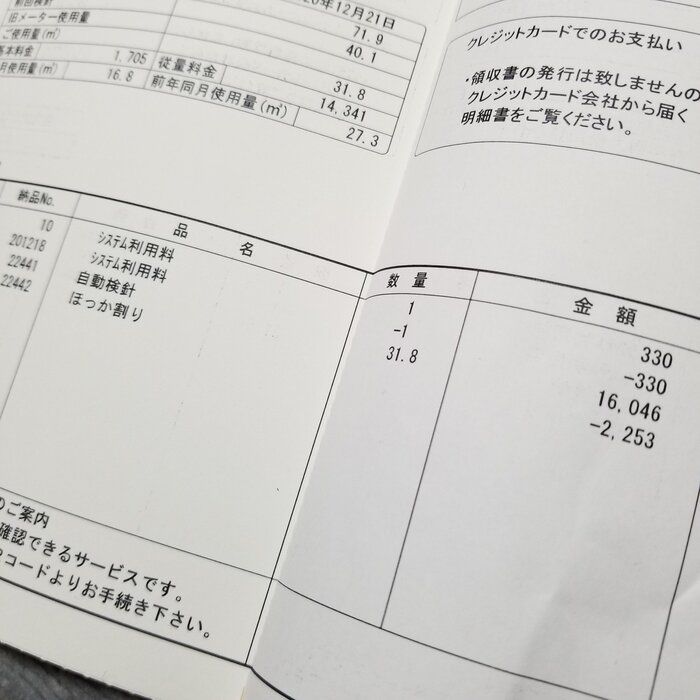 前回検針 20年12月21日
旧メーター使用量 71.9
ご使用量(㎥) 40.1
基本料金 1,705 従量料金 31.8
月使用量(㎥) 16.8 前年同月使用量(㎥) 14,341
27.3
クレジットカードでのお支払い
・領収書の発行は致しませんの
クレジットカード会社から届く
明細書をご覧ください。
納品No. 品名 数量 金額
10 システム利用料 1 330
201218 システム利用料 -1 -330
22441 自動検針 31.8 16,046
22442 ほっか割り -2,253
のご案内
確認できるサービスです。
コードよりお手続き下さい。